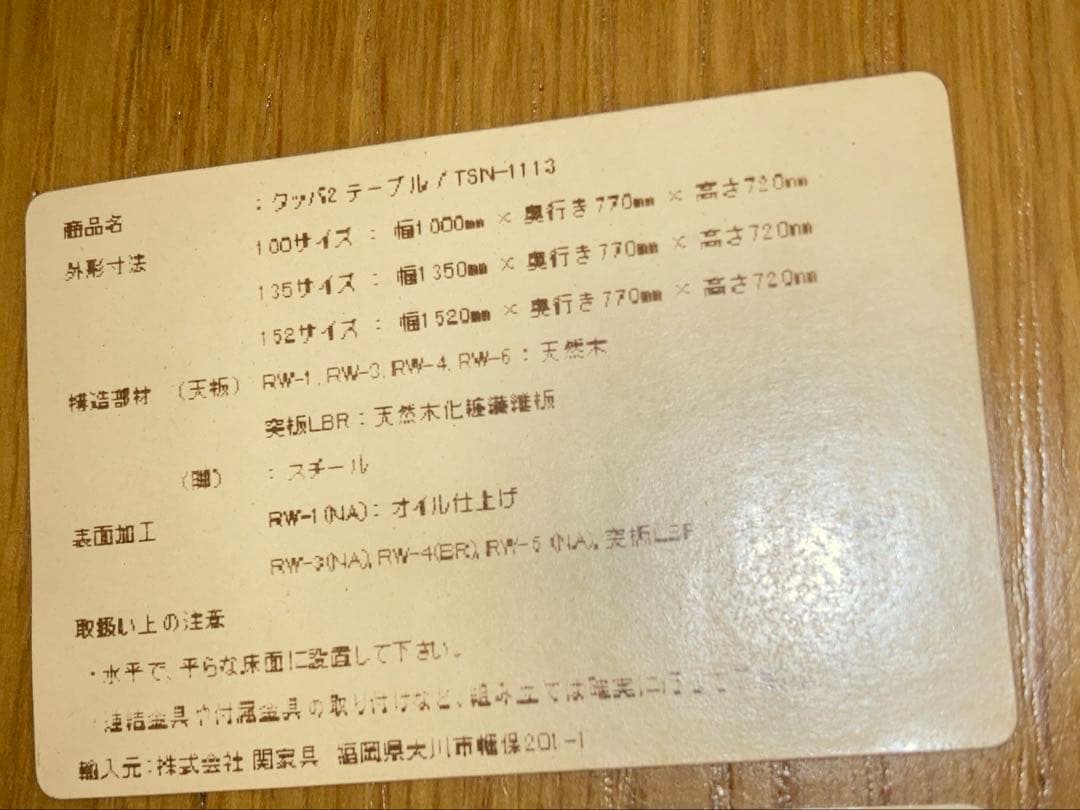 商品名 : タッパ2 テーブル / TSN-1113
外形寸法 100サイズ : 幅1000mm × 奥行き770mm × 高さ720mm
135サイズ : 幅1350mm × 奥行き770mm × 高さ720mm
152サイズ : 幅1520mm × 奥行き770mm × 高さ720mm
構造部材 (天板) RW-1, RW-3, RW-4, RW-5 : 天然木
突板LBR : 天然木化粧繊維板
(脚) : スチール
表面加工 RW-1(NA) : オイル仕上げ
RW-3(NA), RW-4(BR), RW-5 (NA), 突板LBR
取扱い上の注意
・水平で、平らな床面に設置して下さい。
・連結金具や付属金具の取り付けなど、組み立ては確実に行って
輸入元:株式会社 関家具 福岡県大川市幡保201-1